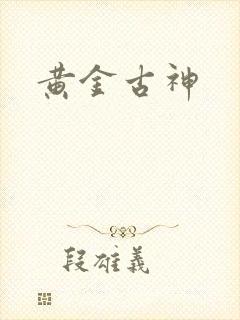 黄金古神
段雄義